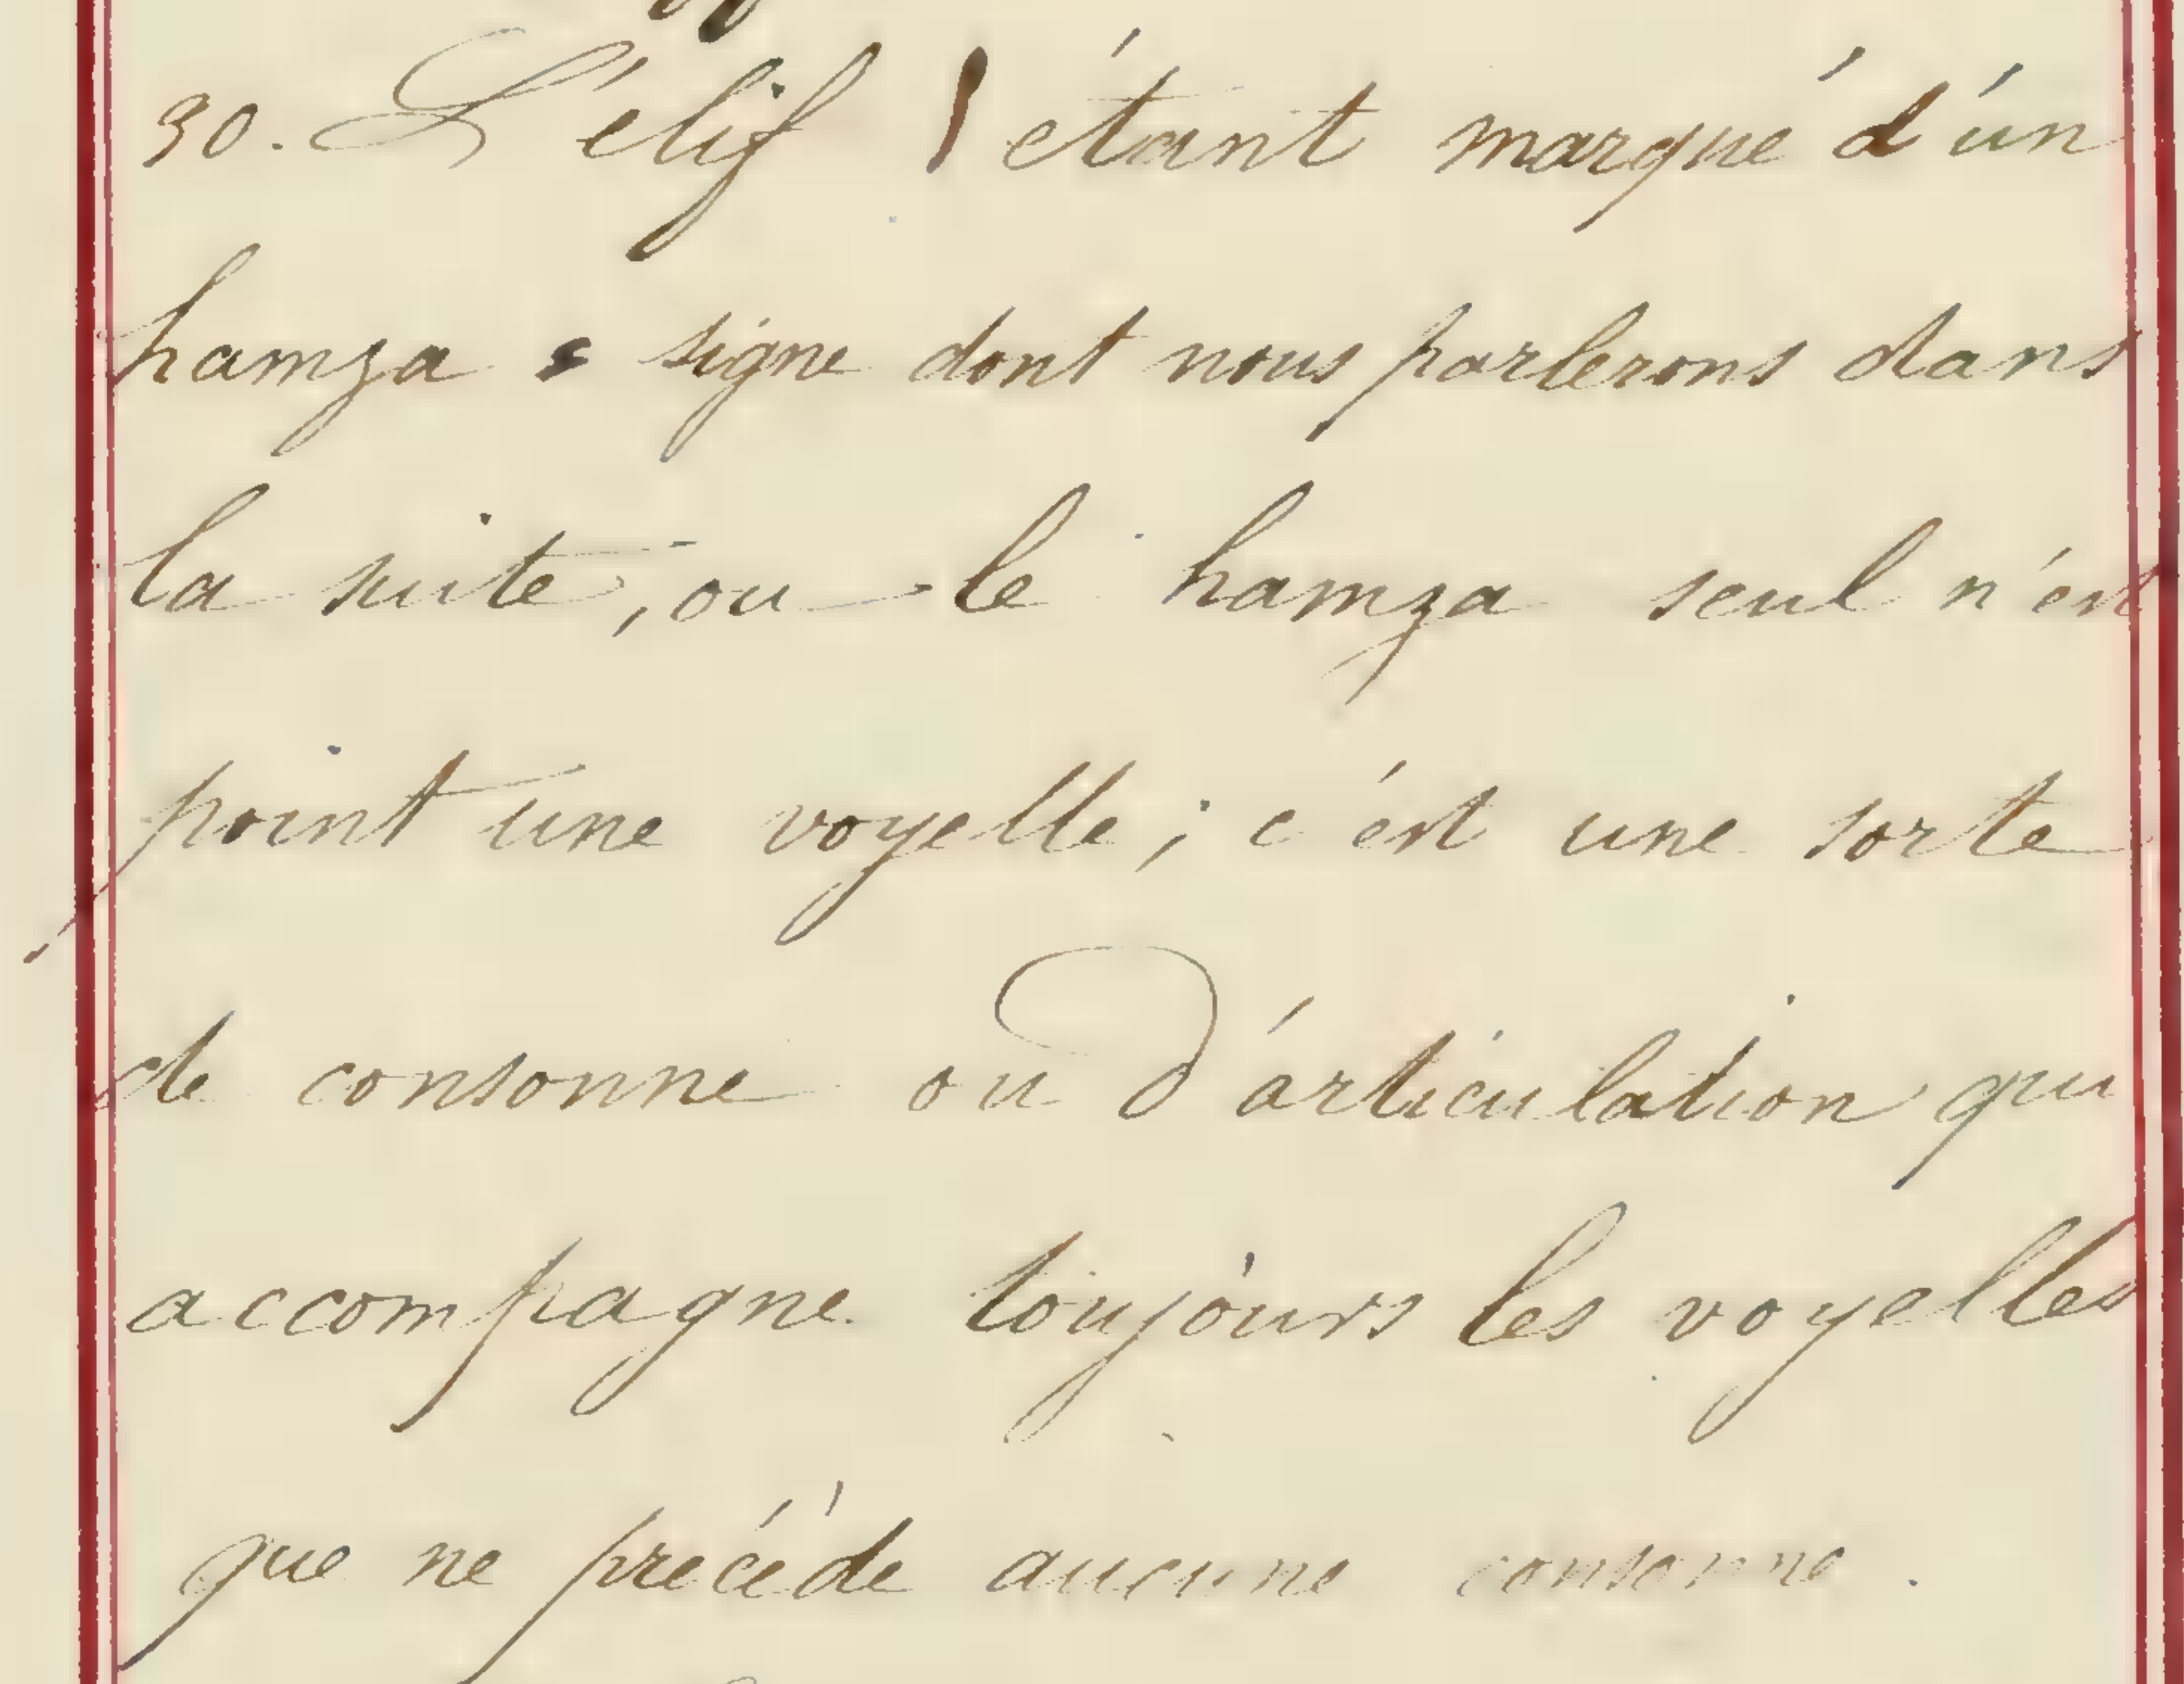 30. L'élif ا étant marqué d'un
hamza ء signe dont nous parlerons dans
la suite, ou le hamza seul n'est
point une voyelle; c'est une sorte
de consonne ou d'articulation qui
accompagne toujours les voyelles
que ne précède aucune consonne.